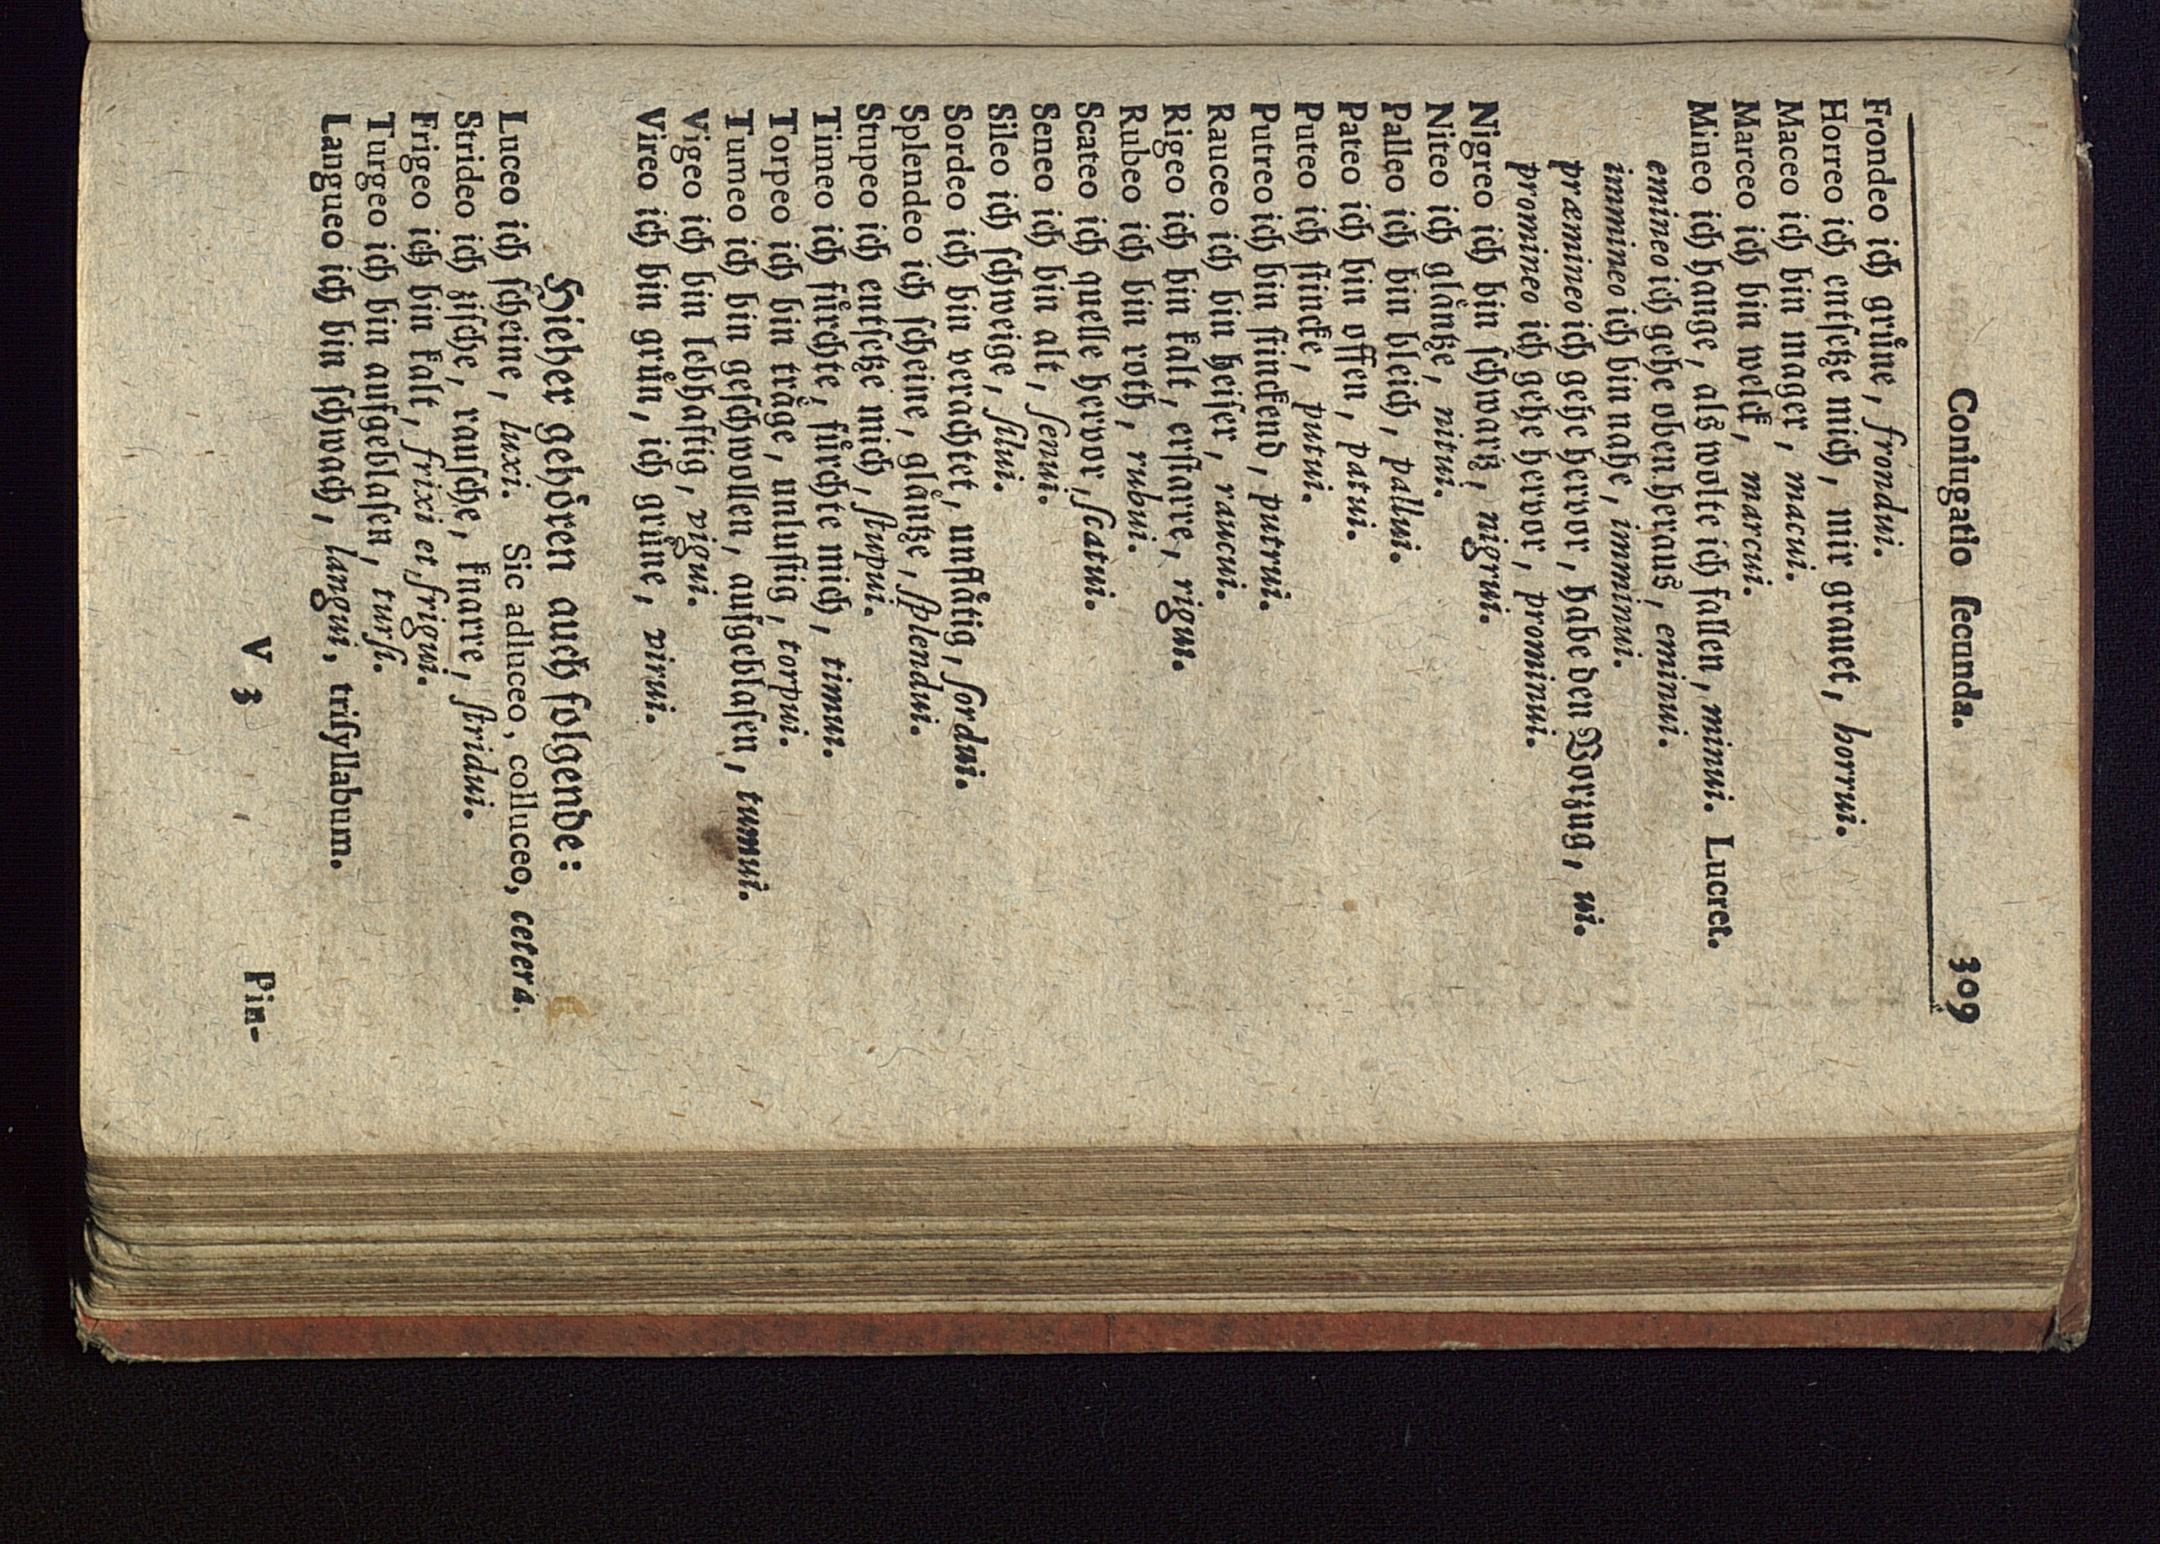 Coniugatio ſecunda. 309
Frondeo ich gruͤne, frondui.
Horreo ich entſetze mich, mir grauet, horrui.
Maceo ich bin mager, macui.
Marceo ich bin welck, marcui.
Mineo ich hange, als wolte ich fallen, minui. Lucret.
emineo ich gehe oben heraus, eminui.
immineo ich bin nahe, imminui.
præmineo ich gehe hervor, habe den Vorzug, ui.
promineo ich gehe hervor, prominui.
Nigreo ich bin ſchwartz, nigrui.
Niteo ich glaͤntze, nitui.
Palleo ich bin bleich, pallui.
Pateo ich bin offen, patui.
Puteo ich ſtincke, putui.
Putreo ich bin ſtinckend, putrui.
Rauceo ich bin heiſer, raucui.
Rigeo ich bin kalt, erſtarre, rigui.
Rubeo ich bin roth, rubui.
Scateo ich quelle hervor, ſcatui.
Seneo ich bin alt, ſenui.
Sileo ich ſchweige, ſilui.
Sordeo ich bin verachtet, unflaͤtig, ſordui.
Splendeo ich ſcheine, glaͤntze, ſplendui.
Stupeo ich entſetze mich, ſtupui.
Timeo ich fuͤrchte, fuͤrchte mich, timui.
Torpeo ich bin traͤge, unluſtig, torpui.
Tumeo ich bin geſchwollen, aufgeblaſen, tumui.
Vigeo ich bin lebhaftig, vigui.
Vireo ich bin gruͤn, ich gruͤne, virui.
Hieher gehoͤren auch folgende:
Luceo ich ſcheine, luxi. Sic adluceo, colluceo, cetera.
Strideo ich ziſche, rauſche, knarre, ſtridui.
Frigeo ich bin kalt, frixi et frigui.
Turgeo ich bin aufgeblaſen, turſi.
Langueo ich bin ſchwach, langui, triſyllabum.
V 3 Pin-